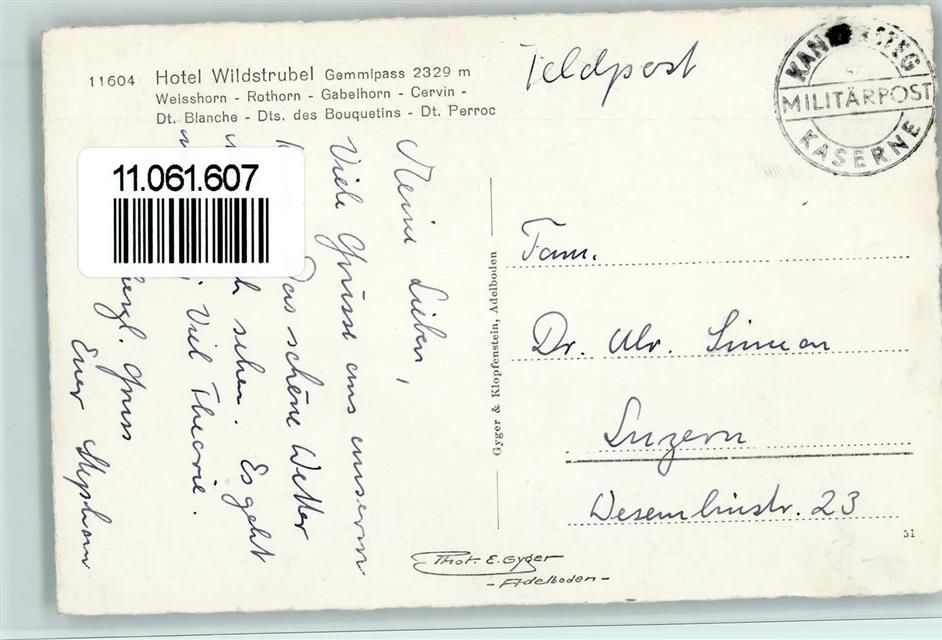 11604 Hotel Wildstrubel Gemmipass 2329 m
Weisshorn - Rothorn - Gabelhorn - Cervin -
Dt. Blanche - Dts. des Bouquetins - Dt. Perroc
Feldpost
MILITÄRPOST
KASERNE
11.061.607
Meine Lieben,
Viele Grüsse aus unserm
Das schöne Wetter
sehen. Es geht
Viel Theorie.
Herzl. Gruss
Euer Stephan
Gyger & Klopfenstein, Adelboden
Fam.
Dr. Ulr. Simeon
Luzern
Wesemlinstr. 23
51
Phot. E. Gyger
- Adelboden -